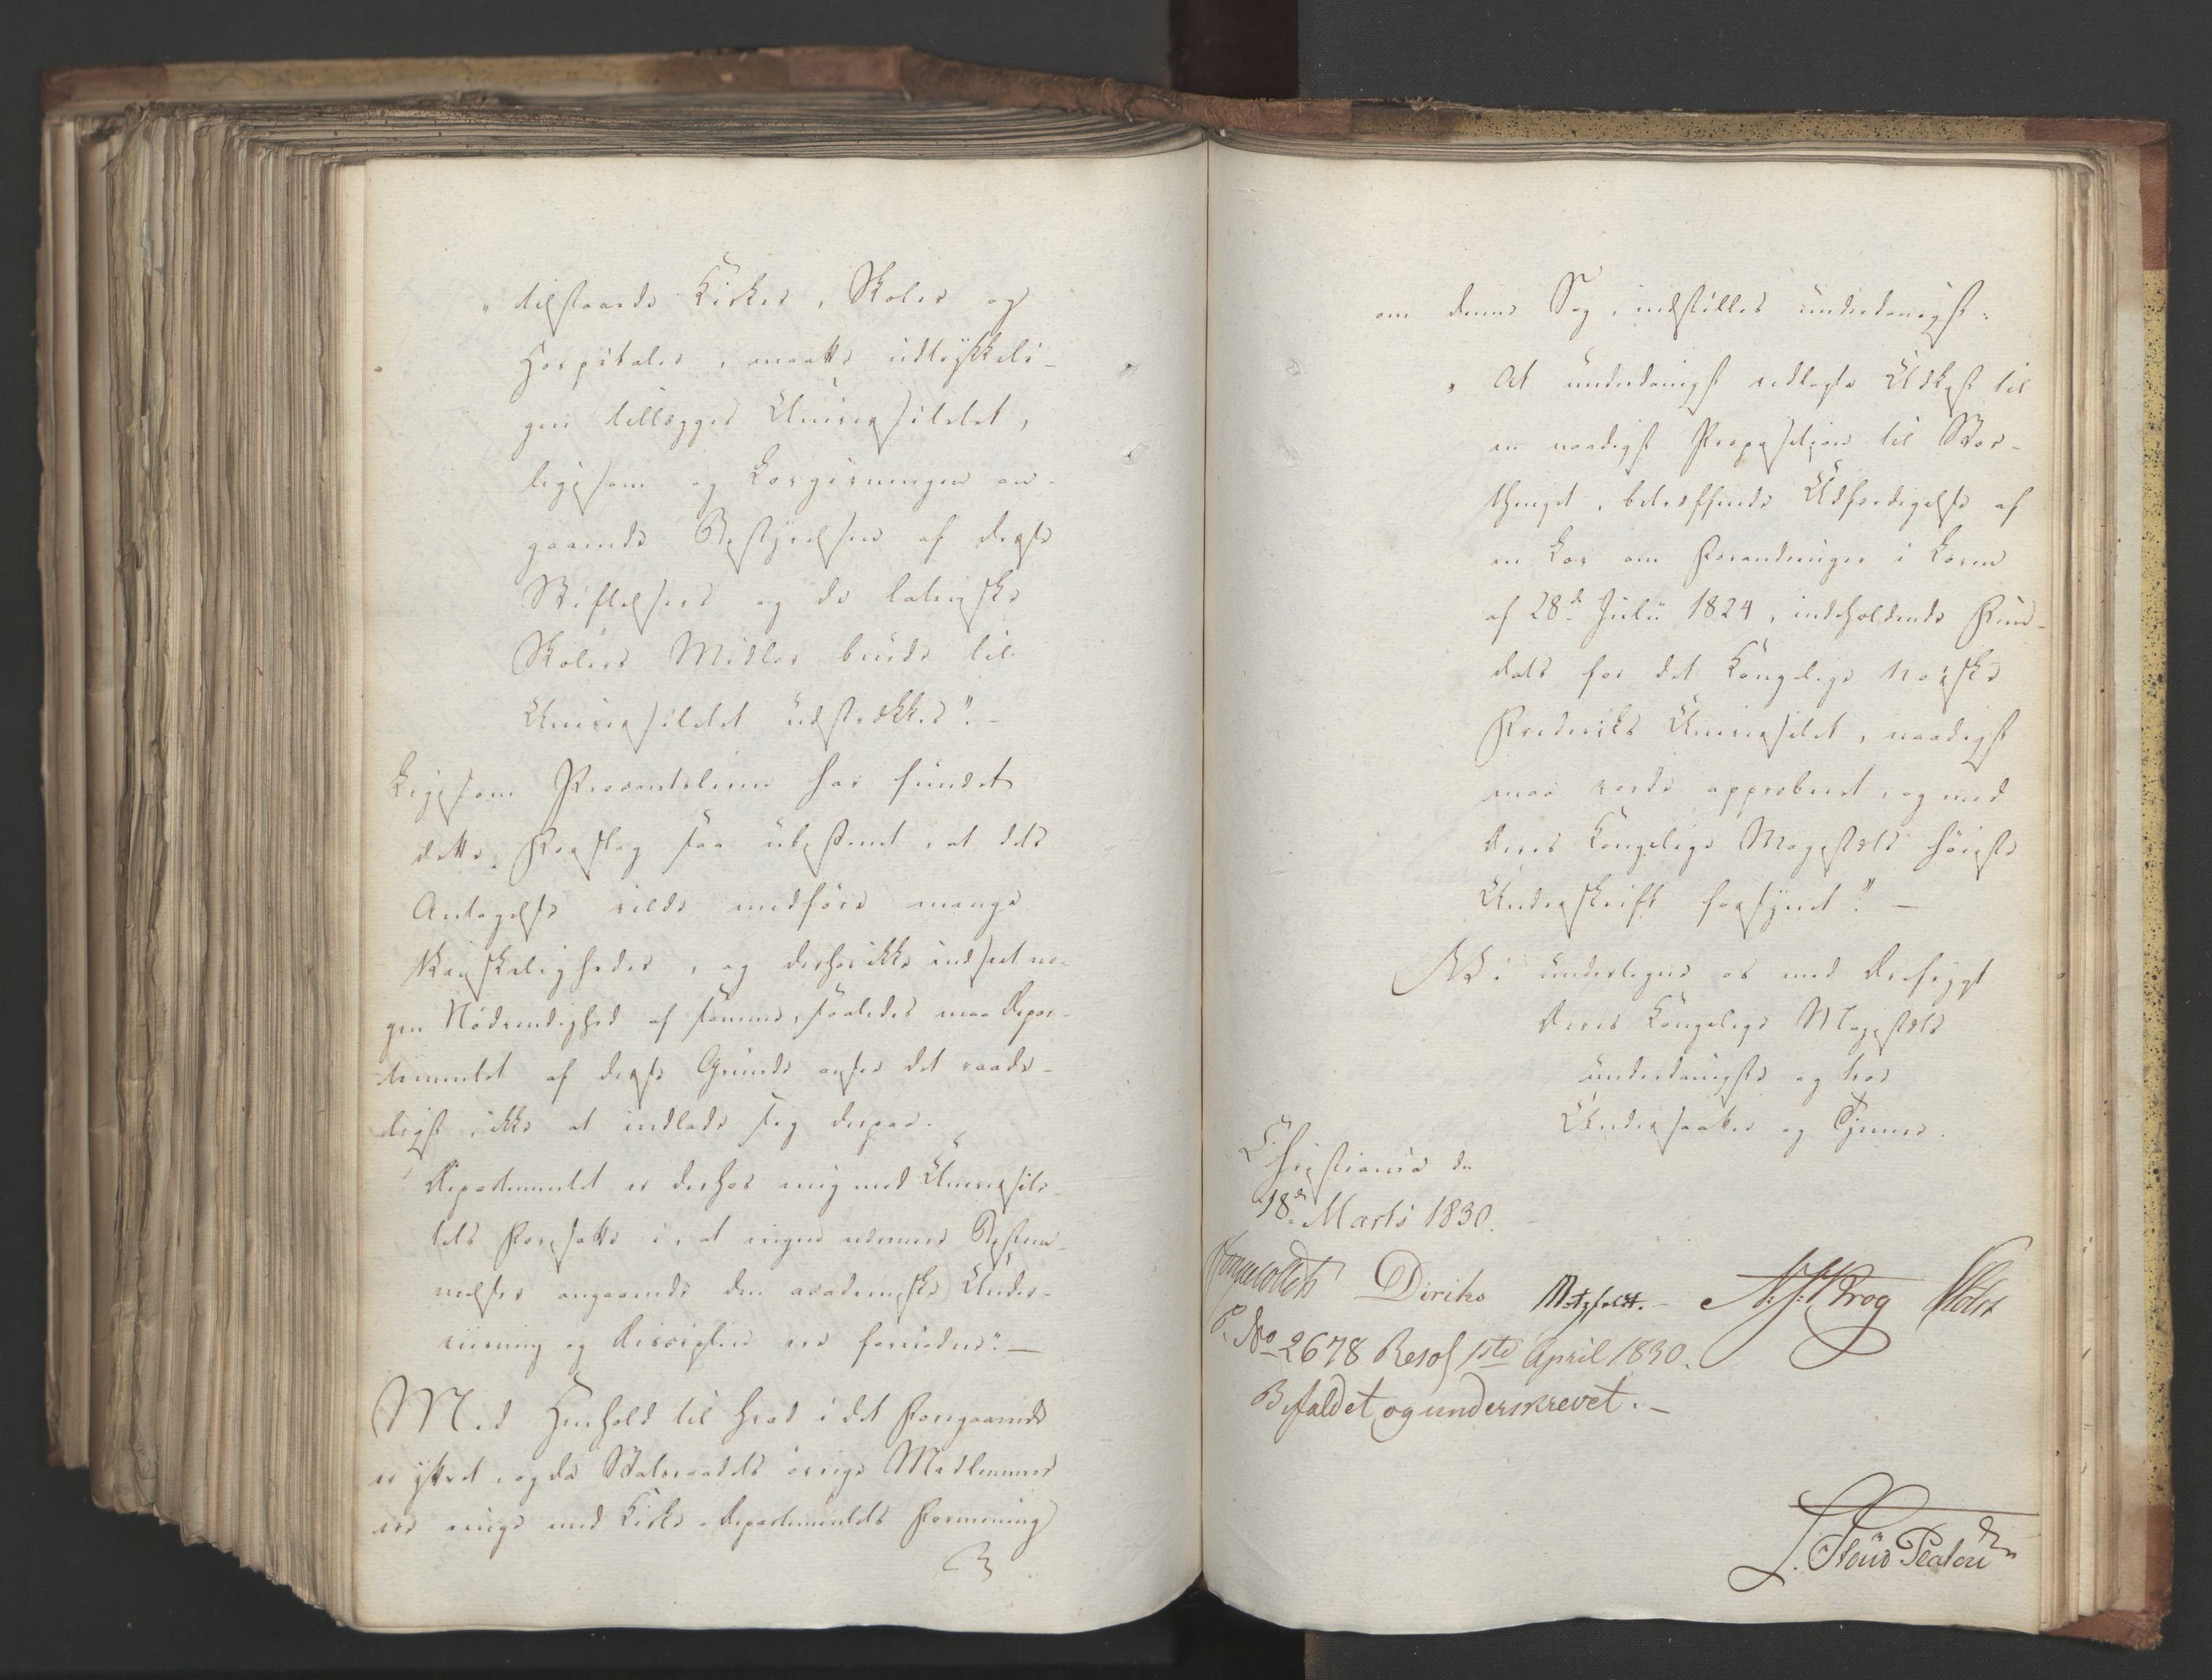 "tilstaaede Kirker, Skoler og
Hospitaler, maatte udtrykkeli-
gen tillægges Universitetet,
ligesom og Lovgivningen an-
gaaende Bestyrelsen af disse
Stiftelsers og de latinske
Skolers Midler burde til
Universitetet udstrækkes". -
Ligesom Procantsleren har fundet
dette Forslag saa ubestemt, at dets
Antagelse vilde medføre mange
Vanskeligheder, og derhos ikke indseet no-
gen Nødvendighed af samme, saaledes maa Depar-
tementet af disse Grunde ansee det raade-
ligst, ikke at indlade sig derpaa.
Departementet er derhos enig med Universite-
tets Foresatte i, at ingen nærmere Bestem-
melser angaaende den academiske Under-
viisning og Disciplin ere fornødne". —
Med Henhold til hvad i det Foregaaende
er yttret, og da Statsraadets øvrige Medlemmer
ere enige med Kirke-Departementets Formening
om denne Sag, indstilles underdanigst:
"At underdanigst vedlagte Udkast til
en naadigst Proposition til Stor-
thinget, betræffende Udfærdigelse af
en Lov om Forandringer i Loven
af 28de Julii 1824, indeholdende Fun-
dats for det Kongelige Norske
Frederiks Universitet, naadigst
maa vorde approberet, og med
Deres Kongelige Majestæts høieste
Underskrift forsynet". —
Vi undertegne os med Devotion
Deres Kongelige Majestæts
underdanigste og troe
Undersaatter og Tjenere.
Christiania den
18de Marts 1830.
Jonas Collett Diriks Motzfeldt. - N:J:Krog Holst
P. No 2678 Resol 1ste April 1830.
Bifaldet og underskrevet. -